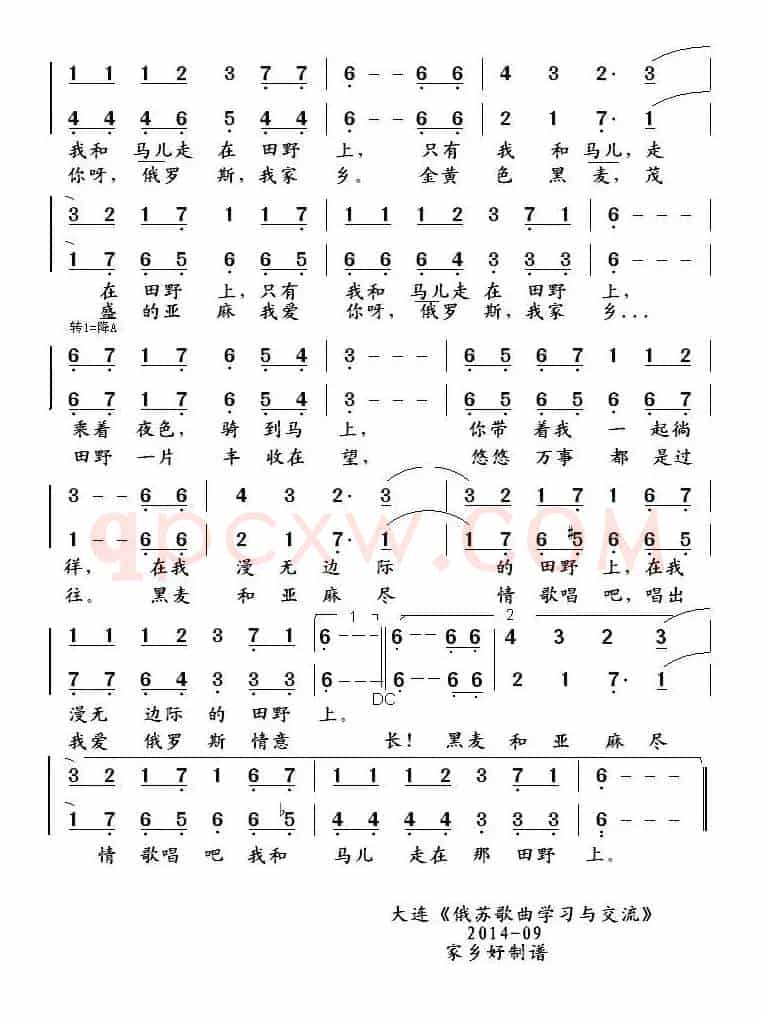 1 1 1 2 3 7 7 6 - - 6 6 4 3 2· 3
4 4 4 6 5 4 4 6 - - 6 6 2 1 7· 1
我和 马儿走 在 田野 上， 只有 我 和 马儿，走
你呀，俄罗 斯，我家 乡。 金黄 色 黑 麦，茂
3 2 1 7 1 1 7 1 1 1 2 3 7 1 6 - - -
1 7 6 5 6 6 5 6 6 6 4 3 3 3 6 - - -
在 田野 上，只有 我和 马儿走 在 田野 上，
盛 的亚 麻 我爱 你呀，俄罗 斯，我家 乡...
转1=降A
6 7 1 7 6 5 4 3 - - - 6 5 6 7 1 1 2
6 7 1 7 6 5 4 3 - - - 6 5 6 7 6 6 6
乘着 夜色， 骑 到马 上， 你带 着我 一 起徜
田野 一片 丰 收在 望， 悠悠 万事 都 是过
3 - - 6 6 4 3 2· 3 3 2 1 7 1 6 7
1 - - 6 6 2 1 7· 1 1 7 6 #5 6 6 5
qpcxw.COM
徉， 在我 漫 无 边 际 的 田野 上，在我
往。 黑麦 和 亚 麻 尽 情 歌唱 吧，唱出
1 2
1 1 1 2 3 7 1 6 - - - 6 - 6 6 4 3 2 3
7 7 6 4 3 3 3 6 - - - 6 - 6 6 2 1 7· 1
DC
漫无 边际 的 田野 上。
我爱 俄罗 斯 情意 长！ 黑麦 和 亚 麻 尽
3 2 1 7 1 6 7 1 1 1 2 3 7 1 6 - - -
1 7 6 5 6 6 ♭5 4 4 4 4 3 3 3 6 - - -
情 歌唱 吧 我和 马儿 走在 那 田野 上。
大连《俄苏歌曲学习与交流》
2014-09
家乡好制谱